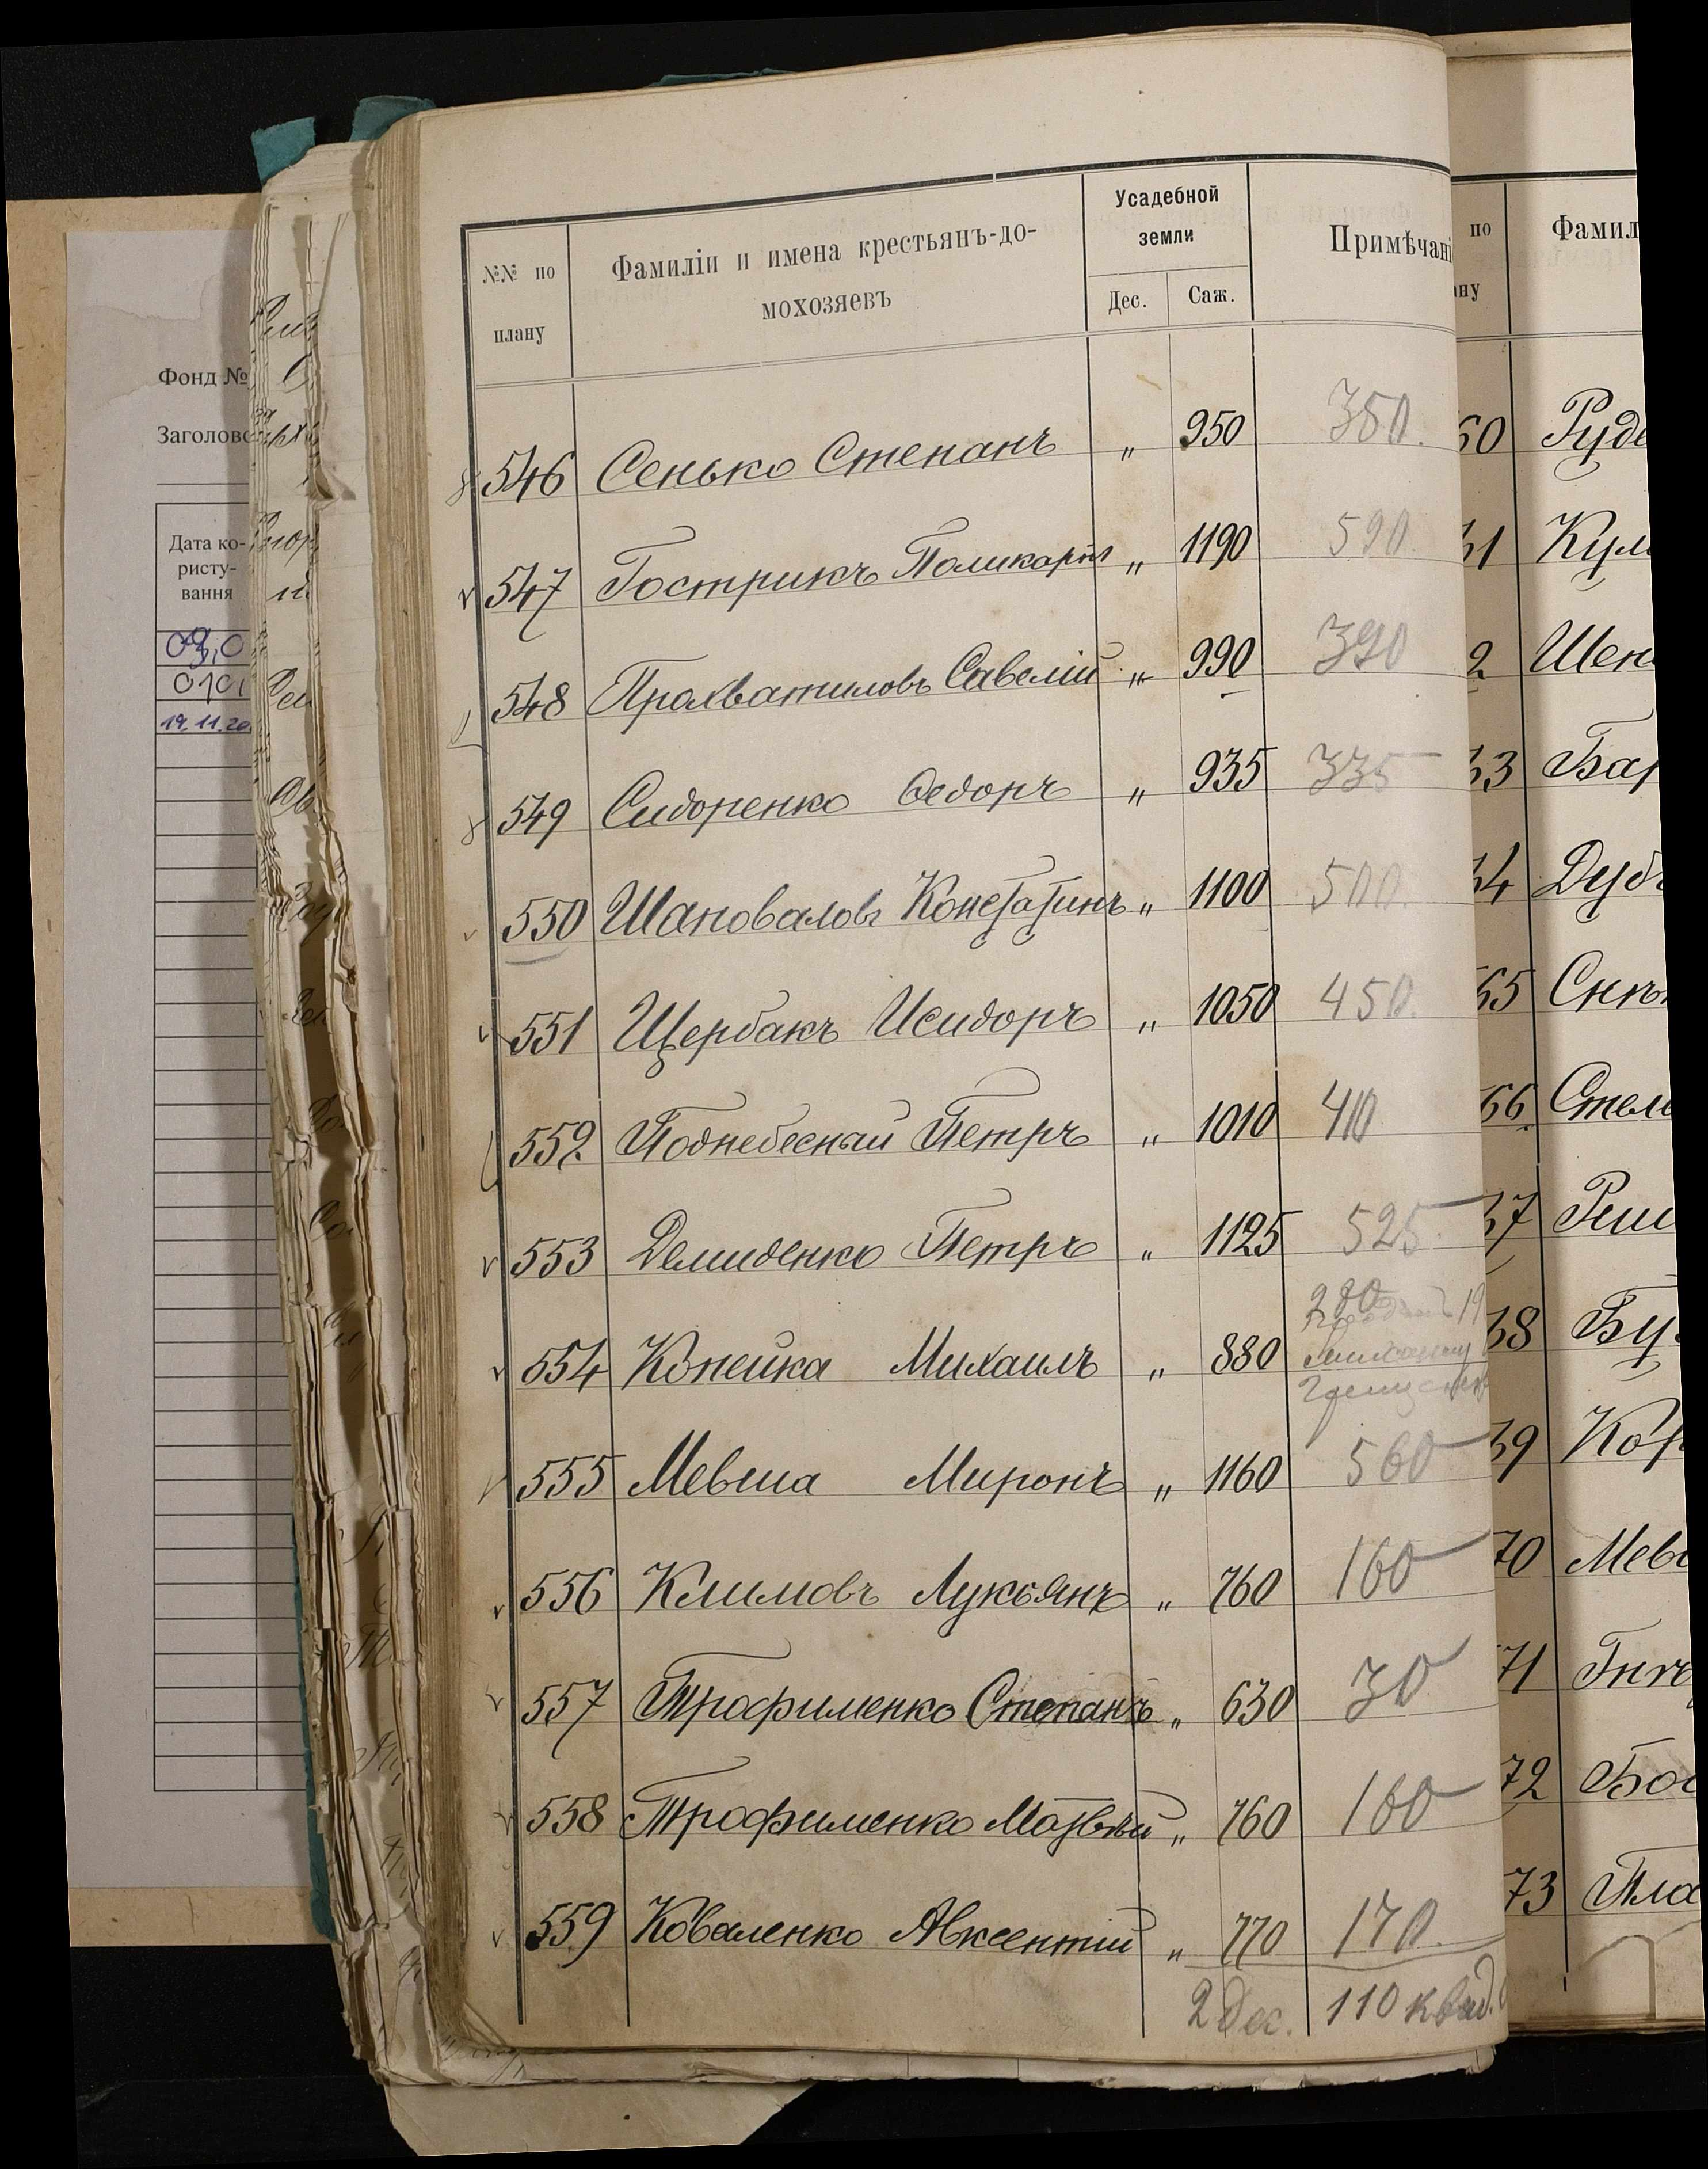 №№ по плану
Фамиліи и имена крестьянъ-до-
мохозяевъ
Усадебной
земли
Дес. Саж.
Примѣчані
546 Сенько Степанъ „ 950 350.
547 Гострикъ Поликарпъ „ 1190 590
548 Прохватиловъ Савелій „ 990 390
549 Сидоренко Ѳедоръ „ 935 335
550 Шаповаловъ Константинъ „ 1100 500.
551 Щербакъ Исидоръ „ 1050 450.
552 Поднебесный Петръ „ 1010 410
553 Демиденко Петръ „ 1125 525.
554 Копейка Михаилъ „ 880 280
555 Мевша Миронъ „ 1160 560
556 Климовъ Лукьянъ „ 760 160
557 Трофименко Степанъ „ 630 30
558 Трофименко Матвѣй „ 760 160
559 Коваленко Авксентій „ 770 170.
2 дес. 110 квад.
по
ну
Фамил
60 Руде
61 Кул
2 Шен
63 Бар
64 Дуб
65 Снѣ
66 Стел
67
68 Бу
69 Кор
70 Мев
71 Гнѣ
72 Бон
73 Пла
Фонд №
Заголово
Дата ко-
ристу-
вання
19.11.20